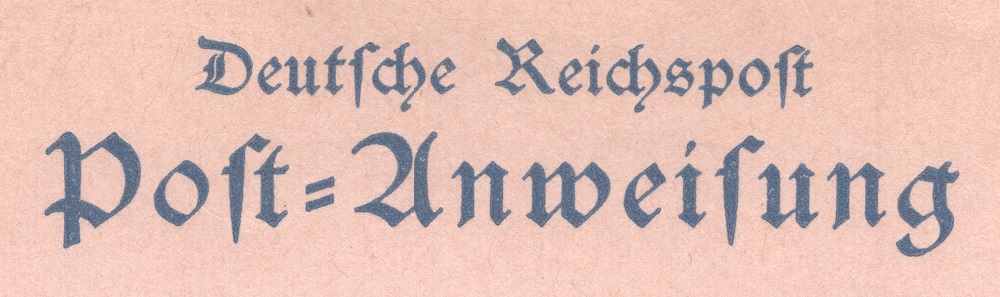 Deutſche Reichspoſt
Poſt=Anweiſung